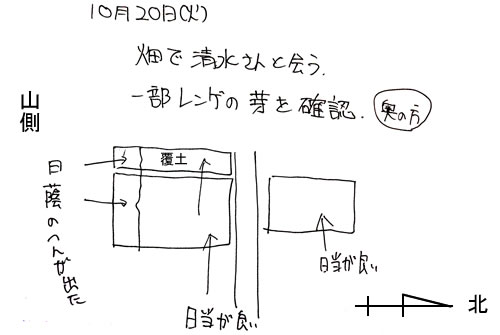 10月20日(火)
畑で清水さんと会う.
一部レンゲの芽を確認. 奥の方
山側
覆土
日蔭のへんが出た
日当が良い
日当が良い
北